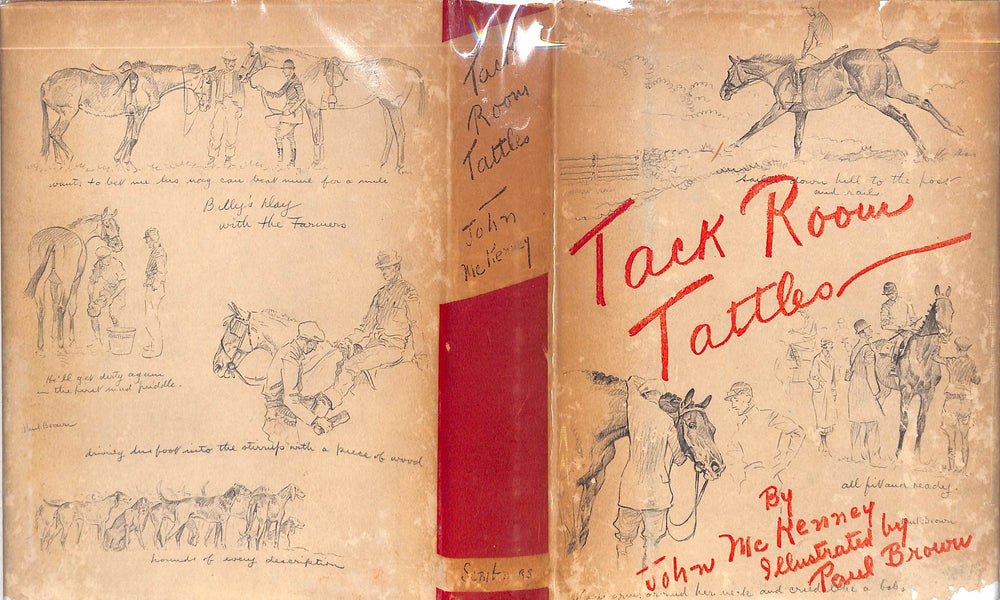 wants to bet me his nag can beat mine for a mile
Billy's play
with the Farmers
He'll get dirty again
in the first mud puddle.
Paul Brown
his foot into the stirrup with a piece of wood
hounds of every description
Tack
Room
Tattles
John
McKenney
Scribners
down hill to the post
and rails
Tack Room
Tattles
all fit and ready.
Paul Brown
By
John McKenney
Illustrated by
Paul Brown
arms around her neck and cried like a baby